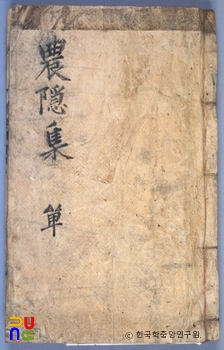 農隠集
單
© 한국학중앙연구원